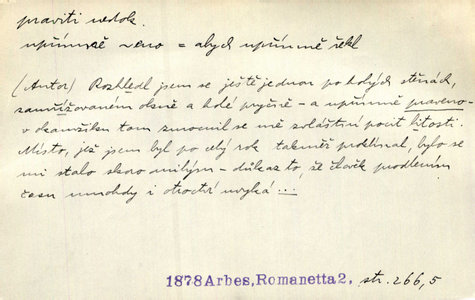 praviti nedok.
upřímně — = abych upřímně řekl
(Autor) Rozhlédl jsem se ještě jednou po holých stěnách,
zamřížovaném okně a holé pryčně – a upřímně praveno –
v okamžiku tom zmocnil se mě zvláštní pocit lítosti.
Místo, jež jsem byl po celý rok takměř proklínal, bylo se
mi stalo skoro milým – důkaz to, že člověk prodlením
času mnohdy i otroctví uvyká ...
1878 Arbes, Romanetta 2, str. 266, 5